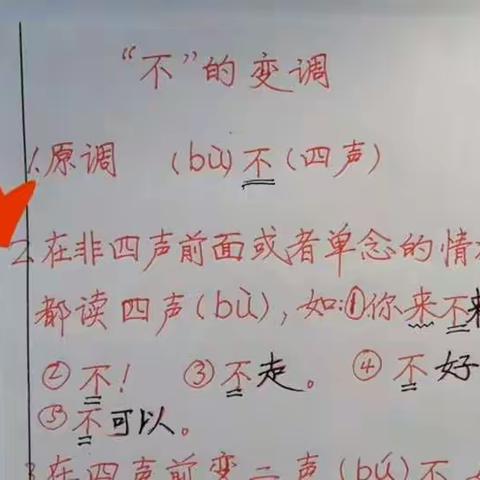 “不”的变调
1.原调 (bù)不(四声)
2.在非四声前面或者单念的情
都读四声(bù),如:①你来不来
②不! ③不走。 ④不好
⑤不可以。
3.在四声前变二声(bú)不